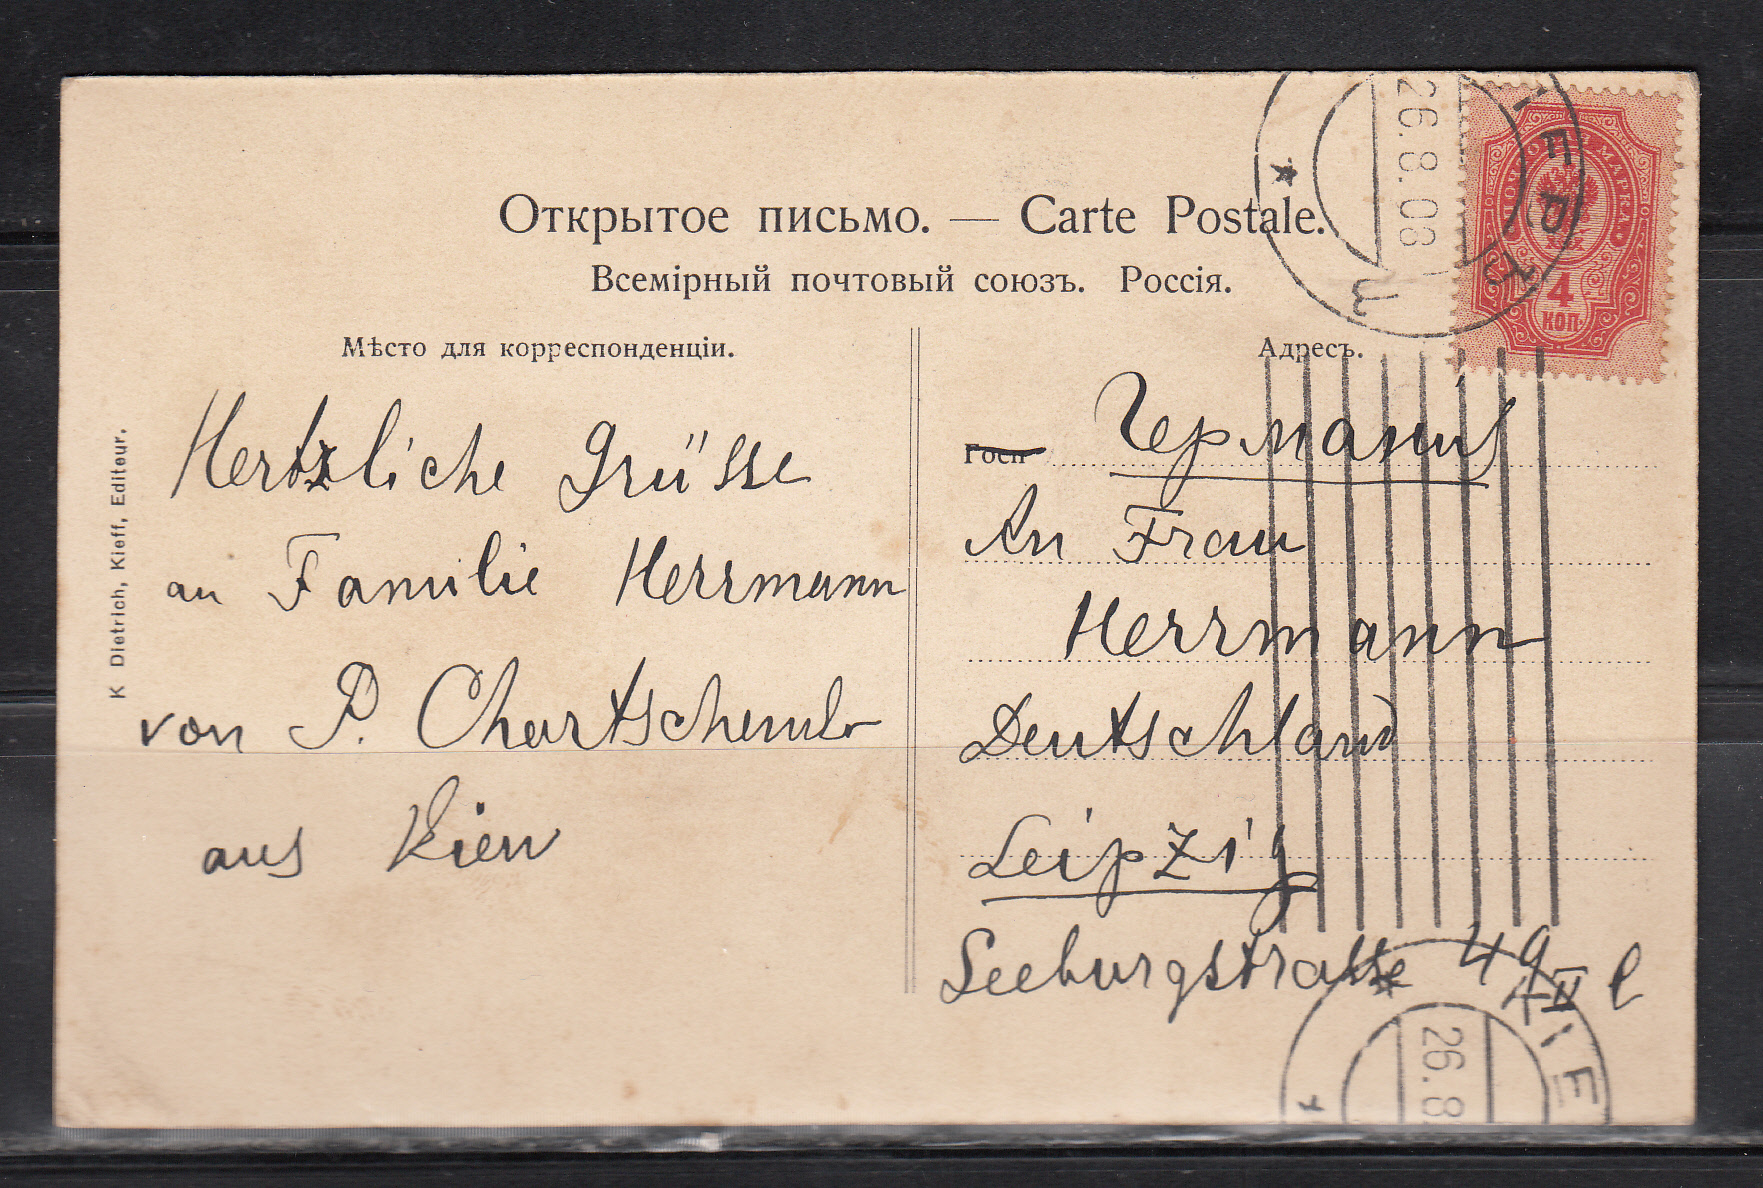 Открытое письмо. — Carte Postale.
Всемірный почтовый союзъ. Россія.
Мѣсто для корреспонденціи.
Адресъ.
K Dietrich, Kieff, Editeur.
Hertzliche Grüsse
an Familie Herrmann
von P.
aus Kiew
Госп
Германія
An Frau
Herrmann
Deutschland
Leipzig
Seeburgstrasse 49 II l
ПОЧТОВАЯ МАРКА
4
КОП.
26.8.08
КІЕ
26.8